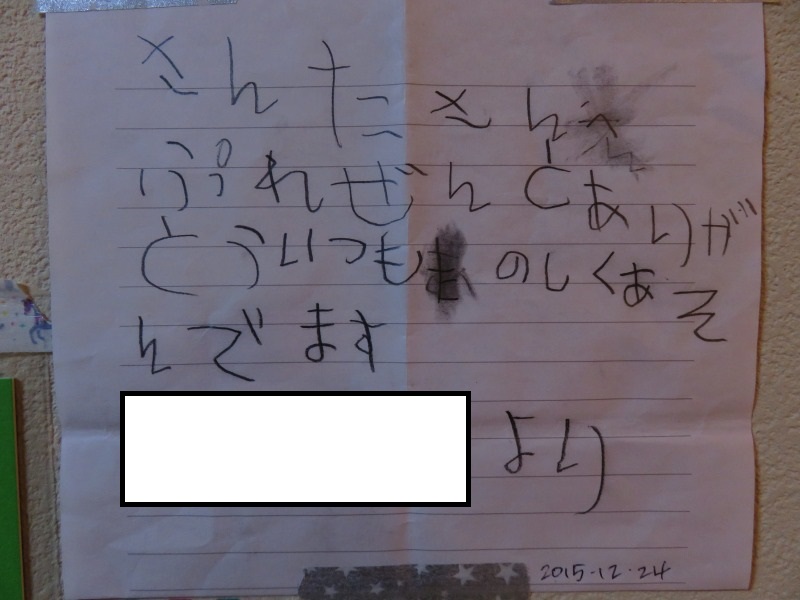 さんたさんへ
ぷれぜんとありが
とういつも のしくあそ
んでます
より
2015・12・24